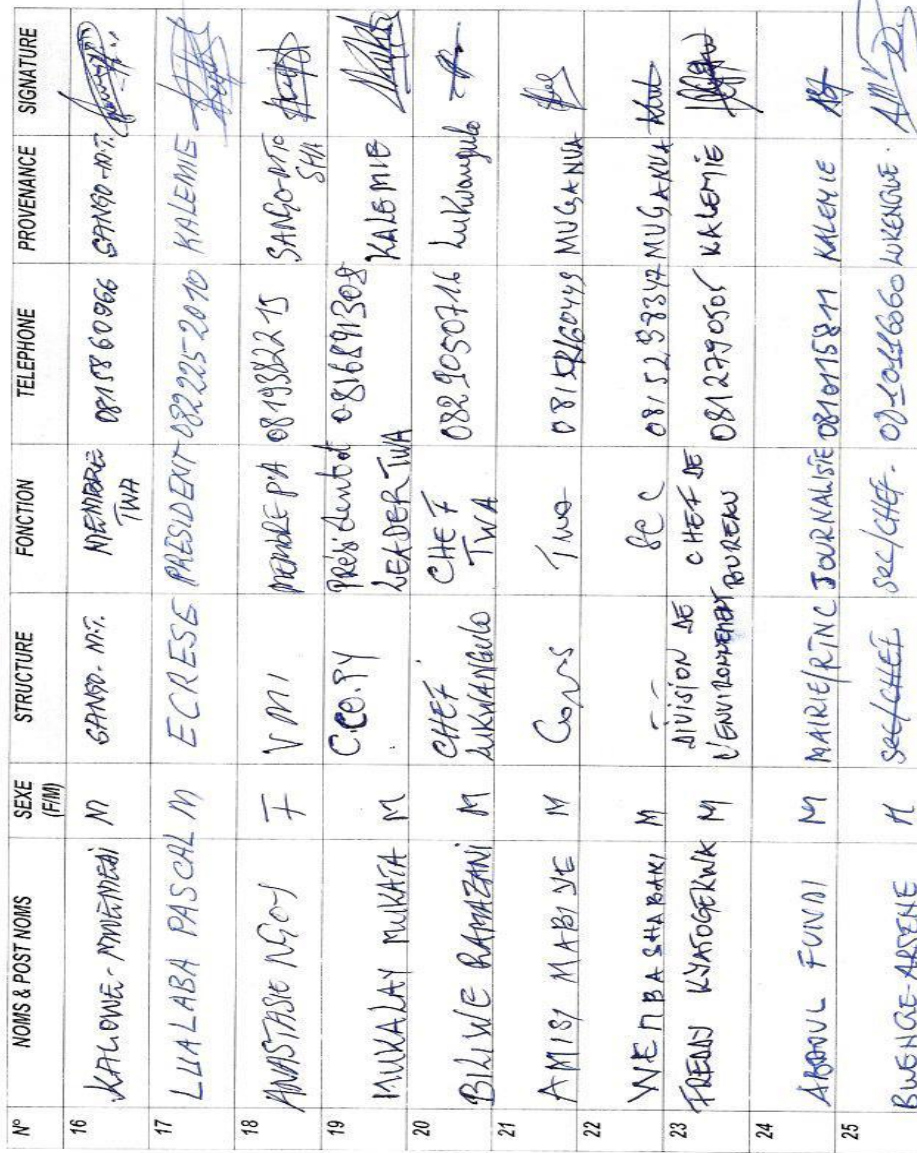 N° NOMS & POST NOMS SEXE (F/M) STRUCTURE FONCTION TELEPHONE PROVENANCE SIGNATURE
16 KALOWE - MWEMEDI M GANGO - M.T. MEMBRE TWA 0815860966 GANGO - M.T.
17 LUALABA PASCAL M ECRESE PRESIDENT 082225-2010 KALEMIE
18 ANASTASIE NGOY F VMI MEMBRE PA 08193822 15 SANGO-MTO SHA
19 MUKALAY MUKATA M C.CO.PY Président et LEADER TWA 0816891308 KALEMIE
20 BILIWE RAMAZANI M CHEF LUKWANGULO CHEF TWA 0829050716 Lukwangulo
21 AMISI MABIYE M TWA MUGANUA
22 WEMBA SHABANI M - SCC 0815298347 MUGANUA
23 FREDDY M DIVISION DE L'ENVIRONNEMENT CHEF DE BUREAU 0812790505 KALEMIE
24 ABDOUL FUNDI M MAIRIE/RTNC JOURNALISTE 0810115811 KALEMIE
25 BWENGE-ARSENE M SEC/CHEF SEC/CHEF. LUKENGUE.